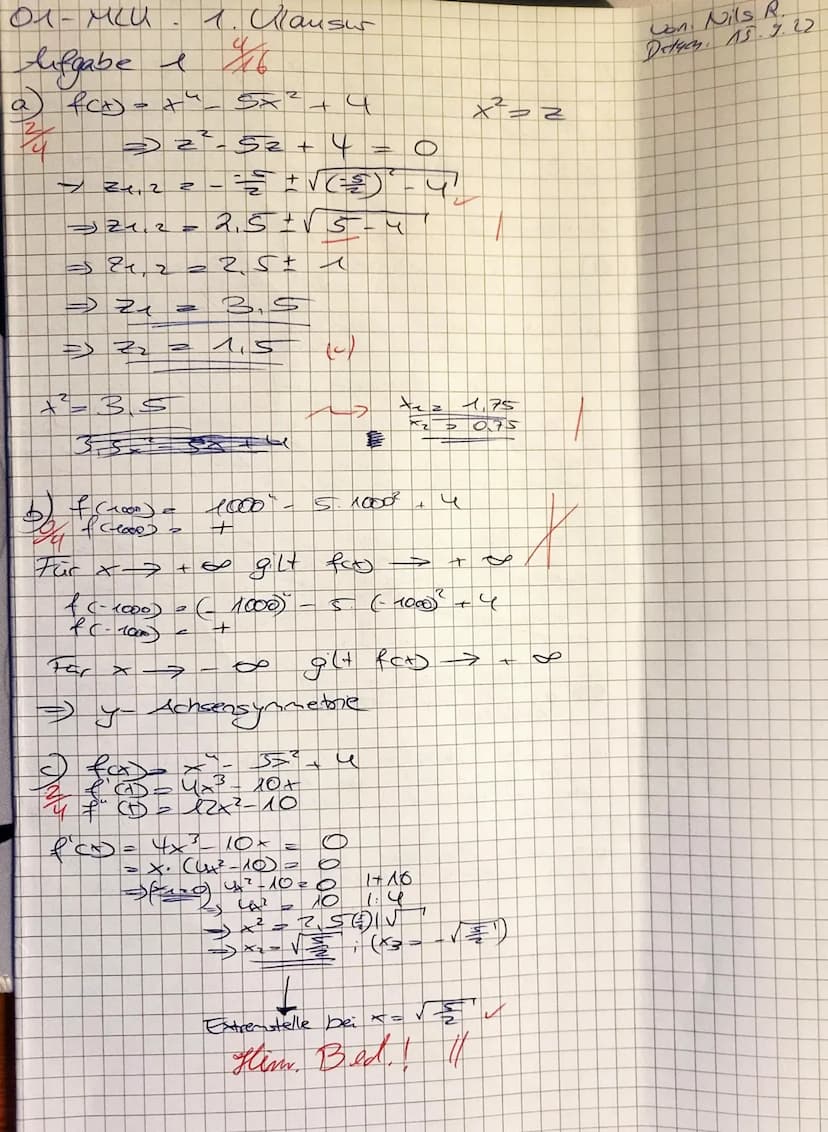 01-MLU. 1. Klausur
von: Nils R.
15.9.22
Aufgabe 1 4/16
a) f(x) = x⁴ - 5x² + 4 x² = z
2/4 => z² - 5z + 4 = 0
→ z₁,₂ = - -5/2 ± √((-5/2)² - 4) ✓
=> z₁,₂ = 2,5 ± √(5 - 4) |
=> z₁,₂ = 2,5 ± 1
=> z₁ = 3,5
=> z₂ = 1,5 (✓)
x² = 3,5 x₁ = 1,75 |
x₂ = 0,75
b) f(1000) = 1000⁴ - 5·1000² + 4
0/4 f(1000) = +
Für x → + ∞ gilt f(x) → + ∞
f(-1000) = (-1000)⁴ - 5·(-1000)² + 4
f(-1000) = +
Für x → - ∞ gilt f(x) → + ∞
=> y-Achsensymmetrie
c) f(x) = x⁴ - 5x² + 4
2/4 f'(x) = 4x³ - 10x
f''(x) = 12x² - 10
f'(x) = 4x³ - 10x = 0
= x·(4x² - 10) = 0
=> (x₁=0) 4x² - 10 = 0 |+10
=> 4x² = 10 |:4
=> x² = 2,5 (5/2) |√
=> x₂ = √(5/2) ; (x₃ = -√(5/2))
Extremstelle bei x = √(5/2) ✓
Hinr. Bed.! ||